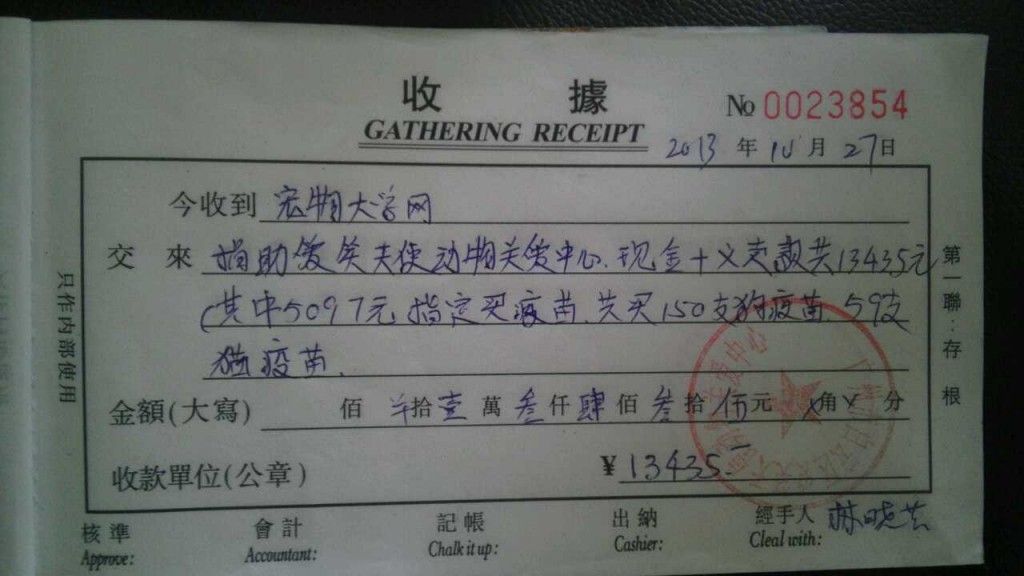 收據
No 0023854
GATHERING RECEIPT
2013 年 10 月 27 日
今收到 宠物大学网
交來 捐助爱笑天使动物关爱中心.现金+义卖款共13435元
(其中5097元指定买疫苗.共买150支狗疫苗.59支
猫疫苗.
金額(大寫) 佰 拾壹萬叁仟肆佰叁拾伍元 角 分
收款單位(公章) ¥13435
只作内部使用
第一聯:存根
核準 會計 記帳 出納 經手人
Approve: Accountant: Chalk it up: Cashier: Cleal with: